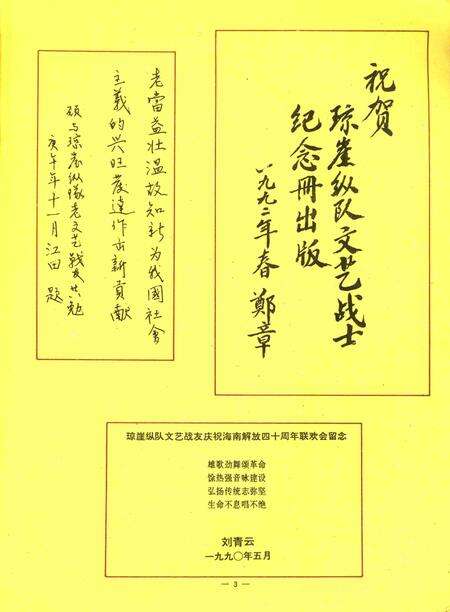 祝贺
琼崖纵队文艺战士
纪念册出版
一九九二年春 鄭章
老當益壮温故知新为我國社會
主義的兴旺發達作出新貢献
願与琼崖纵隊老文艺戰友共勉
庚午年十一月江田题
琼崖纵队文艺战友庆祝海南解放四十周年联欢会留念
雄歌劲舞颂革命
馀热强音咏建设
弘扬传统志弥坚
生命不息唱不绝
刘青云
一九九〇年五月
— 3 —